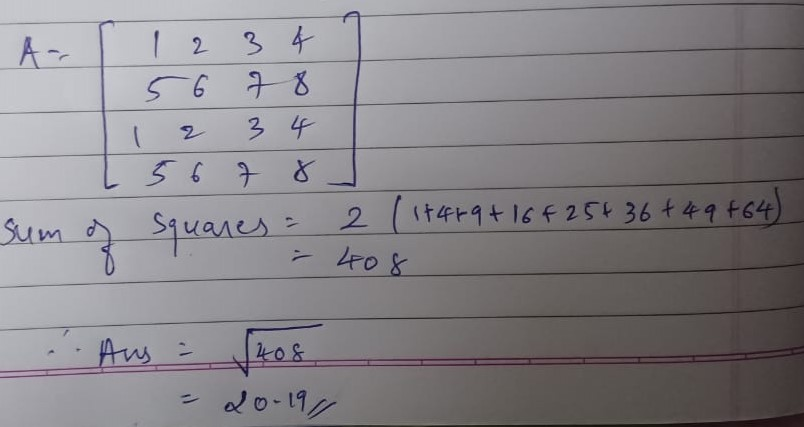 A = [ 1 2 3 4
5 6 7 8
1 2 3 4
5 6 7 8 ]
Sum of Squares = 2 (1+4+9+16+25+36+49+64)
= 408
∴ Ans = √408
= 20.19//